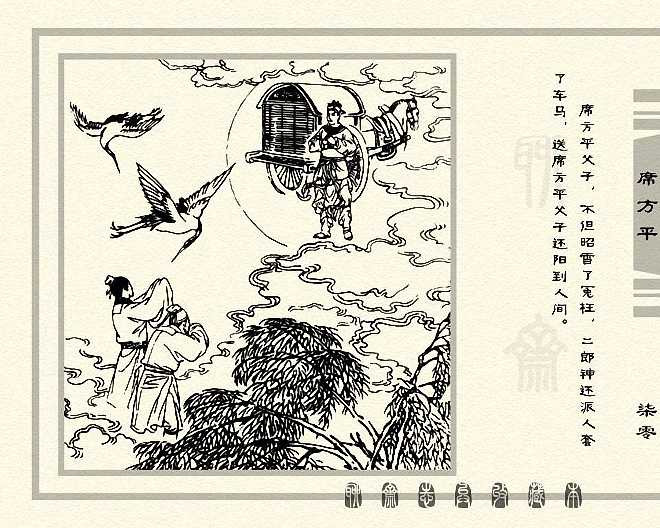 席方平父子，不但昭雪了冤枉，二郎神还派人套
了车马，送席方平父子还阳到人间。
席方平
柒零
聊斋志异收藏本